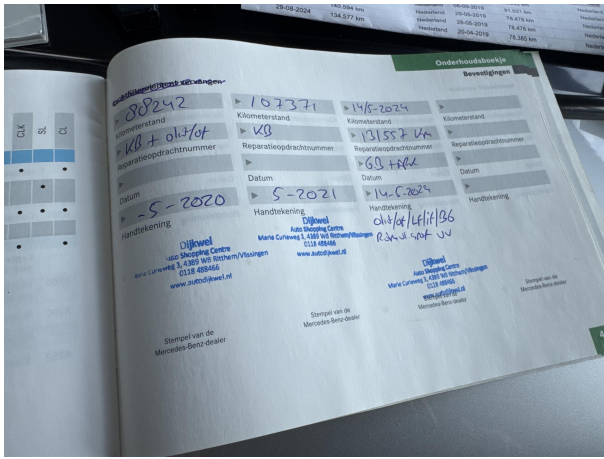 29-08-2024
140.594 km
134.577 km
Nederland
Nederland
Nederland
Nederland
28-05-2019
20-04-2019
81.521 km
78.476 km
78.476 km
78.385 km
Onderhoudsboekje
Bevestigingen
CLK
SL
CL
88242
Kilometerstand
KB + olit/of
Reparatieopdrachtnummer
Datum
-5-2020
Handtekening
Dijkwel
Auto Shopping Centre
Marie Curieweg 3, 4389 WB Ritthem/Vlissingen
0118 488466
www.autodijkwel.nl
Stempel van de
Mercedes-Benz-dealer
107371
Kilometerstand
KB
Reparatieopdrachtnummer
Datum
5-2021
Handtekening
Dijkwel
Auto Shopping Centre
Marie Curieweg 3, 4389 WB Ritthem/Vlissingen
0118 488466
www.autodijkwel.nl
Stempel van de
Mercedes-Benz-dealer
14/5-2024
Kilometerstand
131557 km
Reparatieopdrachtnummer
GB +
Datum
14-5-2024
Handtekening
olit/of/Lf/if/BG
Dijkwel
Auto Shopping Centre
Marie Curieweg 3, 4389 WB Ritthem/Vlissingen
0118 488466
www.autodijkwel.nl
Stempel van de
Mercedes-Benz-dealer
Kilometerstand
Reparatieopdrachtnummer
Datum
Handtekening
Stempel van de
Mercedes-Benz-dealer
4